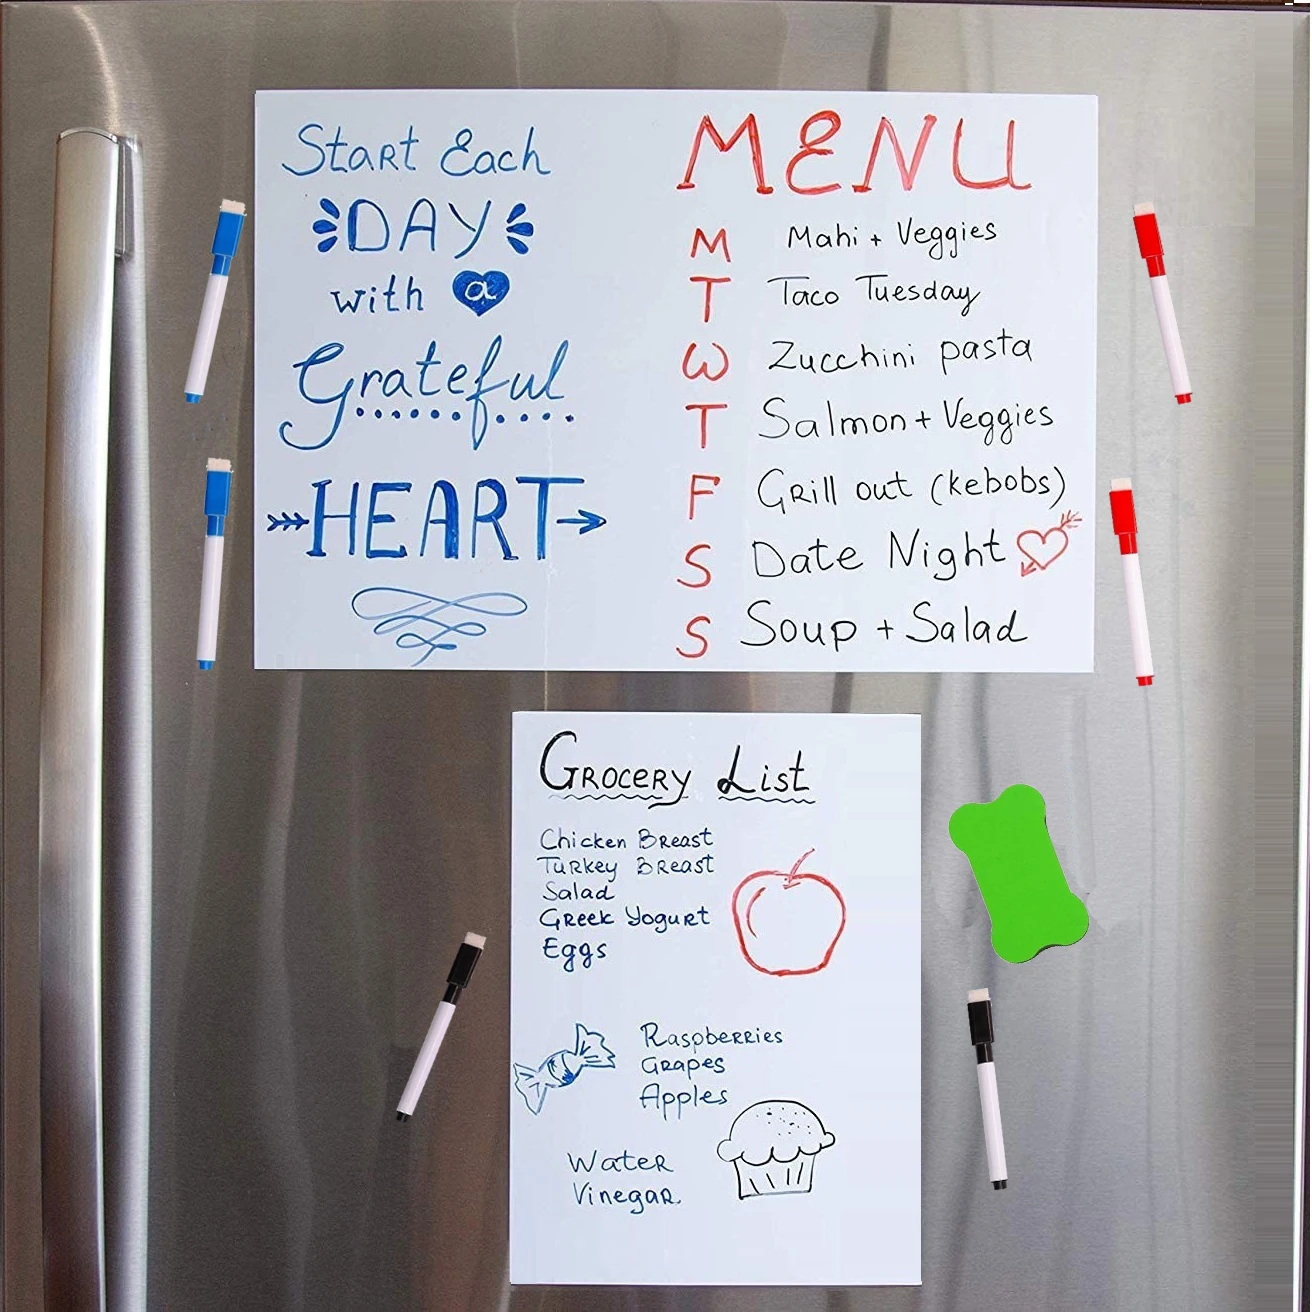 Start Each
DAY
with a
Grateful
HEART
MENU
M Mahi + Veggies
T Taco Tuesday
W Zucchini pasta
T Salmon + Veggies
F Grill out (kebobs)
S Date Night
S Soup + Salad
Grocery List
Chicken Breast
Turkey Breast
Salad
Greek Yogurt
Eggs
Raspberries
Grapes
Apples
Water
Vinegar